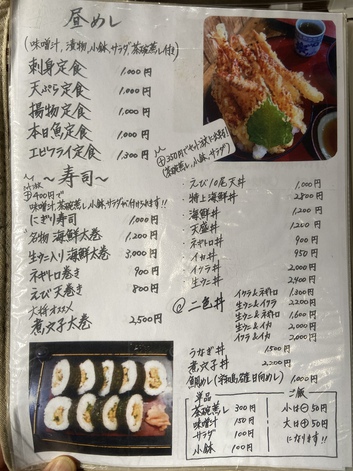 昼めし
(味噌汁,漬物,小鉢,サラダ,茶碗蒸し付き)
刺身定食 1,000円
天ぷら定食 1,000円
揚物定食 1,000円
本日魚定食 1,000円
エビフライ定食 1,300円
⊕350円でセットに
(茶碗蒸し、小鉢、サラダ)
〜寿司〜
⊕400円で
味噌汁,茶碗蒸し,小鉢,サラダが付けれます!!
にぎり寿司 1,000円
名物 海鮮太巻 1,200円
生ウニ入り海鮮太巻 3,000円
ネギトロ巻き 900円
えび天巻き 800円
大将オススメ
煮穴子太巻 2,500円
・えび10尾天丼 1,000円
・特上海鮮丼 2800円
・海鮮丼 1,200円
・天盛丼 1,200円
・ネギトロ丼 900円
・イカ丼 950円
・イクラ丼 2,000円
・生ウニ丼 2,400円
◎二色丼
イクラ&ネギトロ 1,300円
生ウニ&イクラ 2,200円
生ウニ&ネギトロ 1,600円
生ウニ&イカ 2,000円
イクラ&イカ 2,000円
うなぎ丼 1,500円
煮穴子丼 2,200円
鯛めし(宇和島雄日向めし) 1,000円
単品
茶碗蒸し 300円
味噌汁 150円
サラダ 100円
小鉢 100円
ご飯
小は⊖50円
大は⊕50円
になります!!